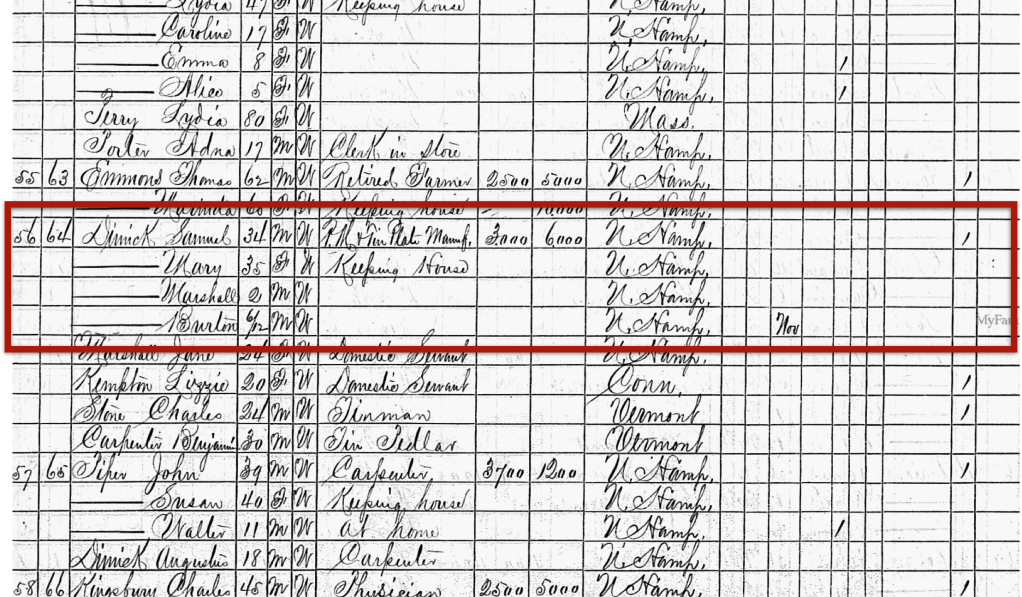 Lydia 47 F W Keeping house N. Hamp,
Caroline 17 F W N. Hamp,
Emma 8 F W N. Hamp, 1
Alice 5 F W N. Hamp, 1
Perry Lydia 80 F W Mass.
Porter Edna 17 M W Clerk in store N. Hamp,
55 63 Emmond Thomas 62 M W Retired Farmer 2500 5000 N. Hamp, 1
60 F W Keeping house 10,000 N. Hamp,
56 64 Dimick Samuel 34 M W P.M. & Tin Plate Manuf. 3000 6000 N. Hamp, 1
Mary 35 F W Keeping House N. Hamp,
Marshall 2 M W N. Hamp,
Burton 6/12 M W N. Hamp, Nov
MyFa
Marshall Jane 24 F W Domestic Servant N. Hamp.
Kempton Lizzie 20 F W Domestic Servant Conn, 1
Stone Charles 24 M W Tinman Vermont 1
Carpenter Benjamin 30 M W Tin Pedlar Vermont
57 65 Piper John 39 M W Carpenter 3700 1200 N. Hamp, 1
Susan 40 F W Keeping house N. Hamp,
Walter 11 M W at home N. Hamp, 1
Dimick Augustus 18 M W Carpenter N. Hamp,
58 66 Kingsbury Charles 45 M W Physician 2500 5000 N. Hamp, 1